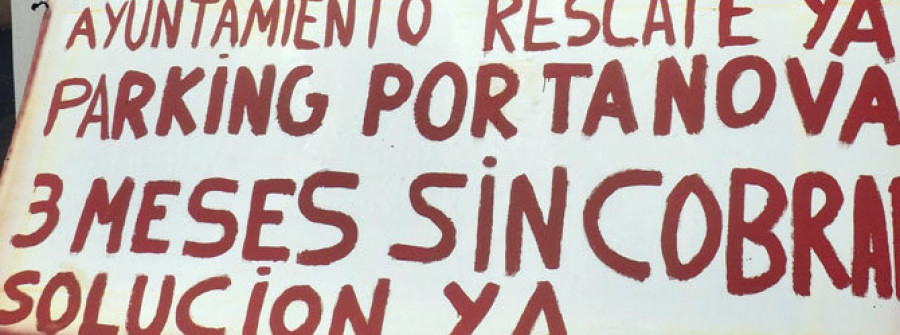 AYUNTAMIENTO RESCATE YA
PARKING PORTANOVA
3 MESES SIN COBRAR
SOLUCION YA